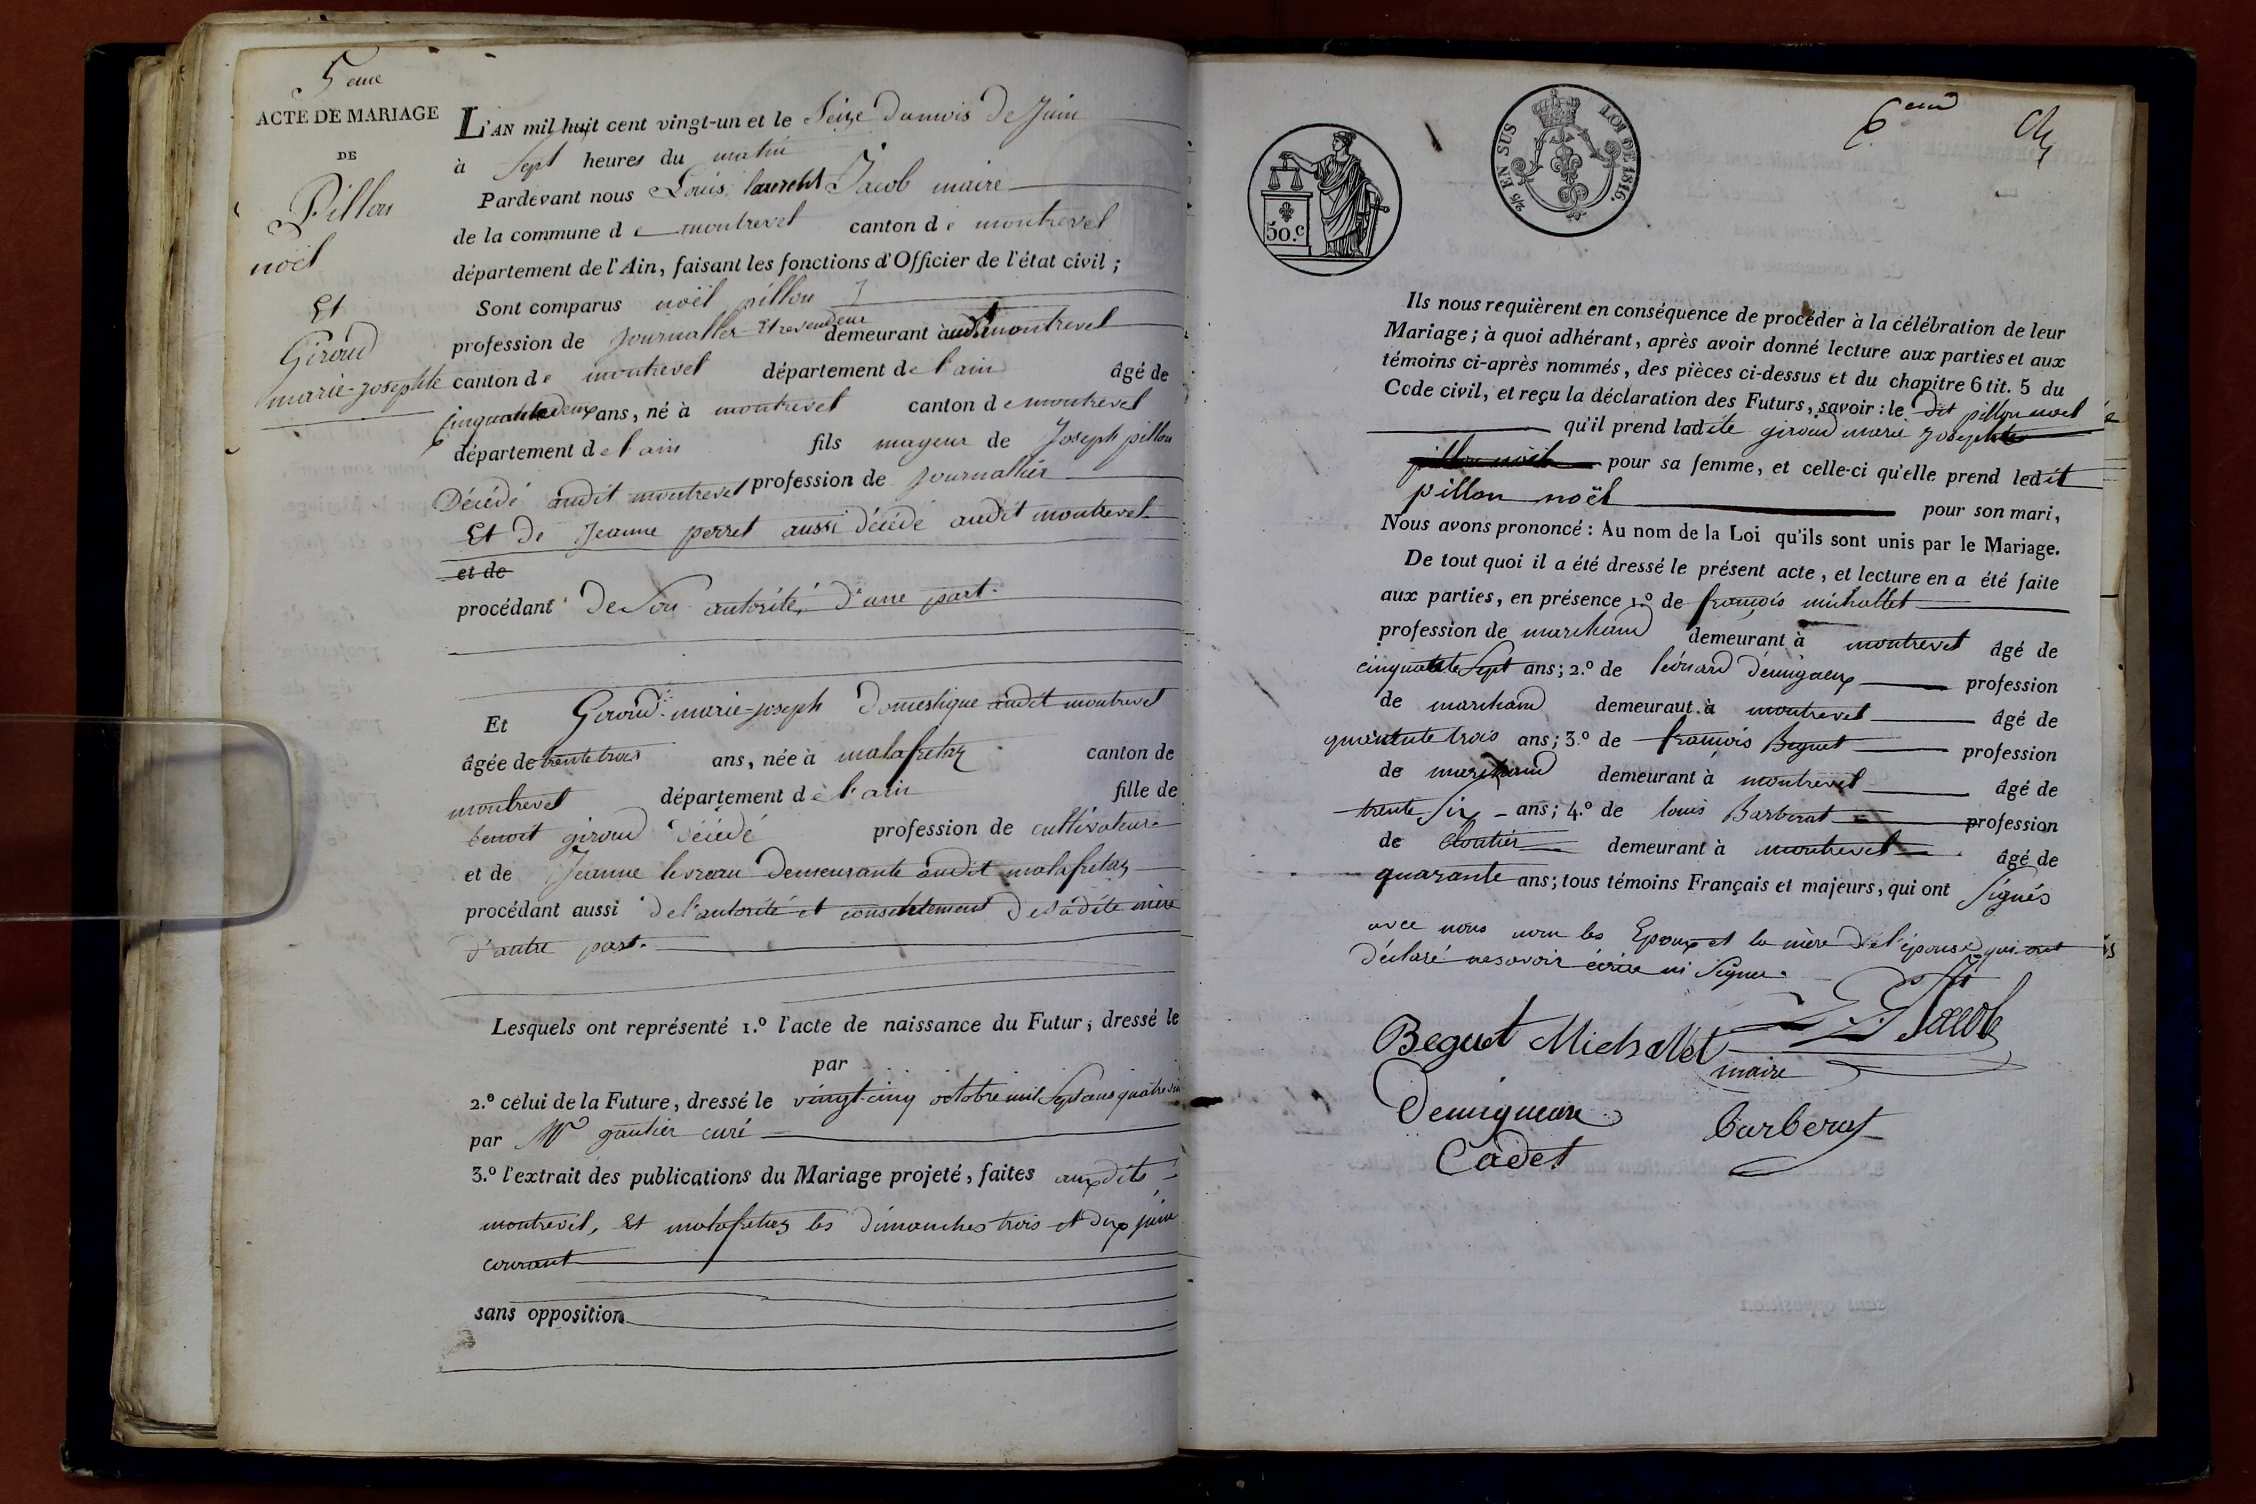 5eme
ACTE DE MARIAGE
DE
Pillon
noël
Et
Giroud
marie-Josephte
L'AN mil huit cent vingt-un et le Seize dumois De Juin
à Sept heures du matin
Pardevant nous Louis laurent Jacob maire
de la commune de montrevel canton de montrevel
département de l'Ain, faisant les fonctions d'Officier de l'état civil ;
Sont comparus noël pillon
profession de Journallier Et revendeur demeurant audit montrevel
canton de montrevel département de l'ain âgé de
Cinquante deux ans, né à montrevel canton de montrevel
département de l'ain fils mageur de Joseph pillon
Décédé audit montrevel profession de Journallier
Et De Jeanne perret aussi décédé audit montrevel
et de
procédant De Son autorité, d'une part.
Et Giroud marie-Joseph Domestique audit montrevel
âgée de trente trois ans, née à malafretaz canton de
montrevel département de l'ain fille de
benoit giroud décédé profession de cultivateur
et de Jeanne levrau Demeurante audit malafretaz
procédant aussi de l'autorité et consentement de sadite mère
d'autre part.
Lesquels ont représenté 1.º l'acte de naissance du Futur ; dressé le
par
2.º celui de la Future, dressé le vingt-cinq octobre mil Septcens quatrevin
par Mr gautier curé
3.º l'extrait des publications du Mariage projeté, faites auxdits
montrevel, Et malafretaz les dimanches trois et dix juin
courant
sans opposition
50.c
2/5 EN SUS
LOI DE 1816.
6eme
Ils nous requièrent en conséquence de procéder à la célébration de leur
Mariage ; à quoi adhérant, après avoir donné lecture aux parties et aux
témoins ci-après nommés, des pièces ci-dessus et du chapitre 6 tit. 5 du
Code civil, et reçu la déclaration des Futurs, savoir : le dit pillon noel
qu'il prend ladite giroud marie Josephte
pillon noël pour sa femme, et celle-ci qu'elle prend ledit
pillon noël pour son mari,
Nous avons prononcé : Au nom de la Loi qu'ils sont unis par le Mariage.
De tout quoi il a été dressé le présent acte, et lecture en a été faite
aux parties, en présence 1.º de françois michallet
profession de marchand demeurant à montrevel âgé de
cinquante Sept ans ; 2.º de léonard demigueux profession
de marchand demeuraut à montrevel âgé de
quarante trois ans ; 3.º de françois Beguet profession
de marchand demeurant à montrevel âgé de
trente Six ans ; 4.º de louis Barberat profession
de Cloutier demeurant à montrevel âgé de
quarante ans ; tous témoins Français et majeurs, qui ont Signés
avec nous non les Epoux et la mère de l'épouse qui ont
déclaré nesavoir écrire ni Signer.
Beguet Michallet Jacob
maire
Demigueux
Cadet
barberat